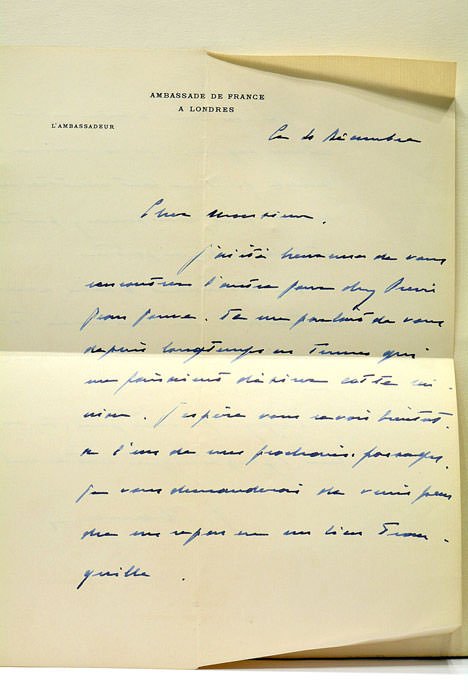 AMBASSADE DE FRANCE
A LONDRES
L'AMBASSADEUR
Ce 20 décembre
Cher Monsieur,
J'ai été heureux de vous
rencontrer l'autre jour chez Pierre
Jean Jouve. Il me parlait de vous
depuis longtemps en termes qui
me faisaient désirer cette ré-
union. J'espère vous revoir bientôt,
à l'un de mes prochains passages.
Je vous demanderai de venir pren
dre un repas en un lieu tran-
quille.